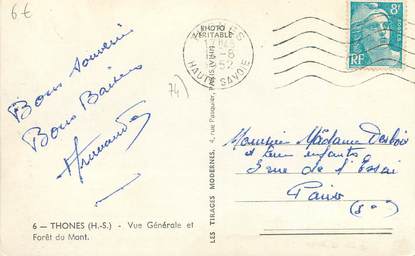 6 €
PHOTO
VÉRITABLE
HAUTE SAVOIE
8F
POSTES
RF
74)
Bons Souvenirs
Bons Baisers
LES TIRAGES MODERNES, 4, rue Pasquier, PARIS (VIIIe)
Monsieur Madame
et leurs enfants
rue de l'Essai
Paris
6 — THONES (H.-S.) - Vue Générale et
Forêt du Mont.